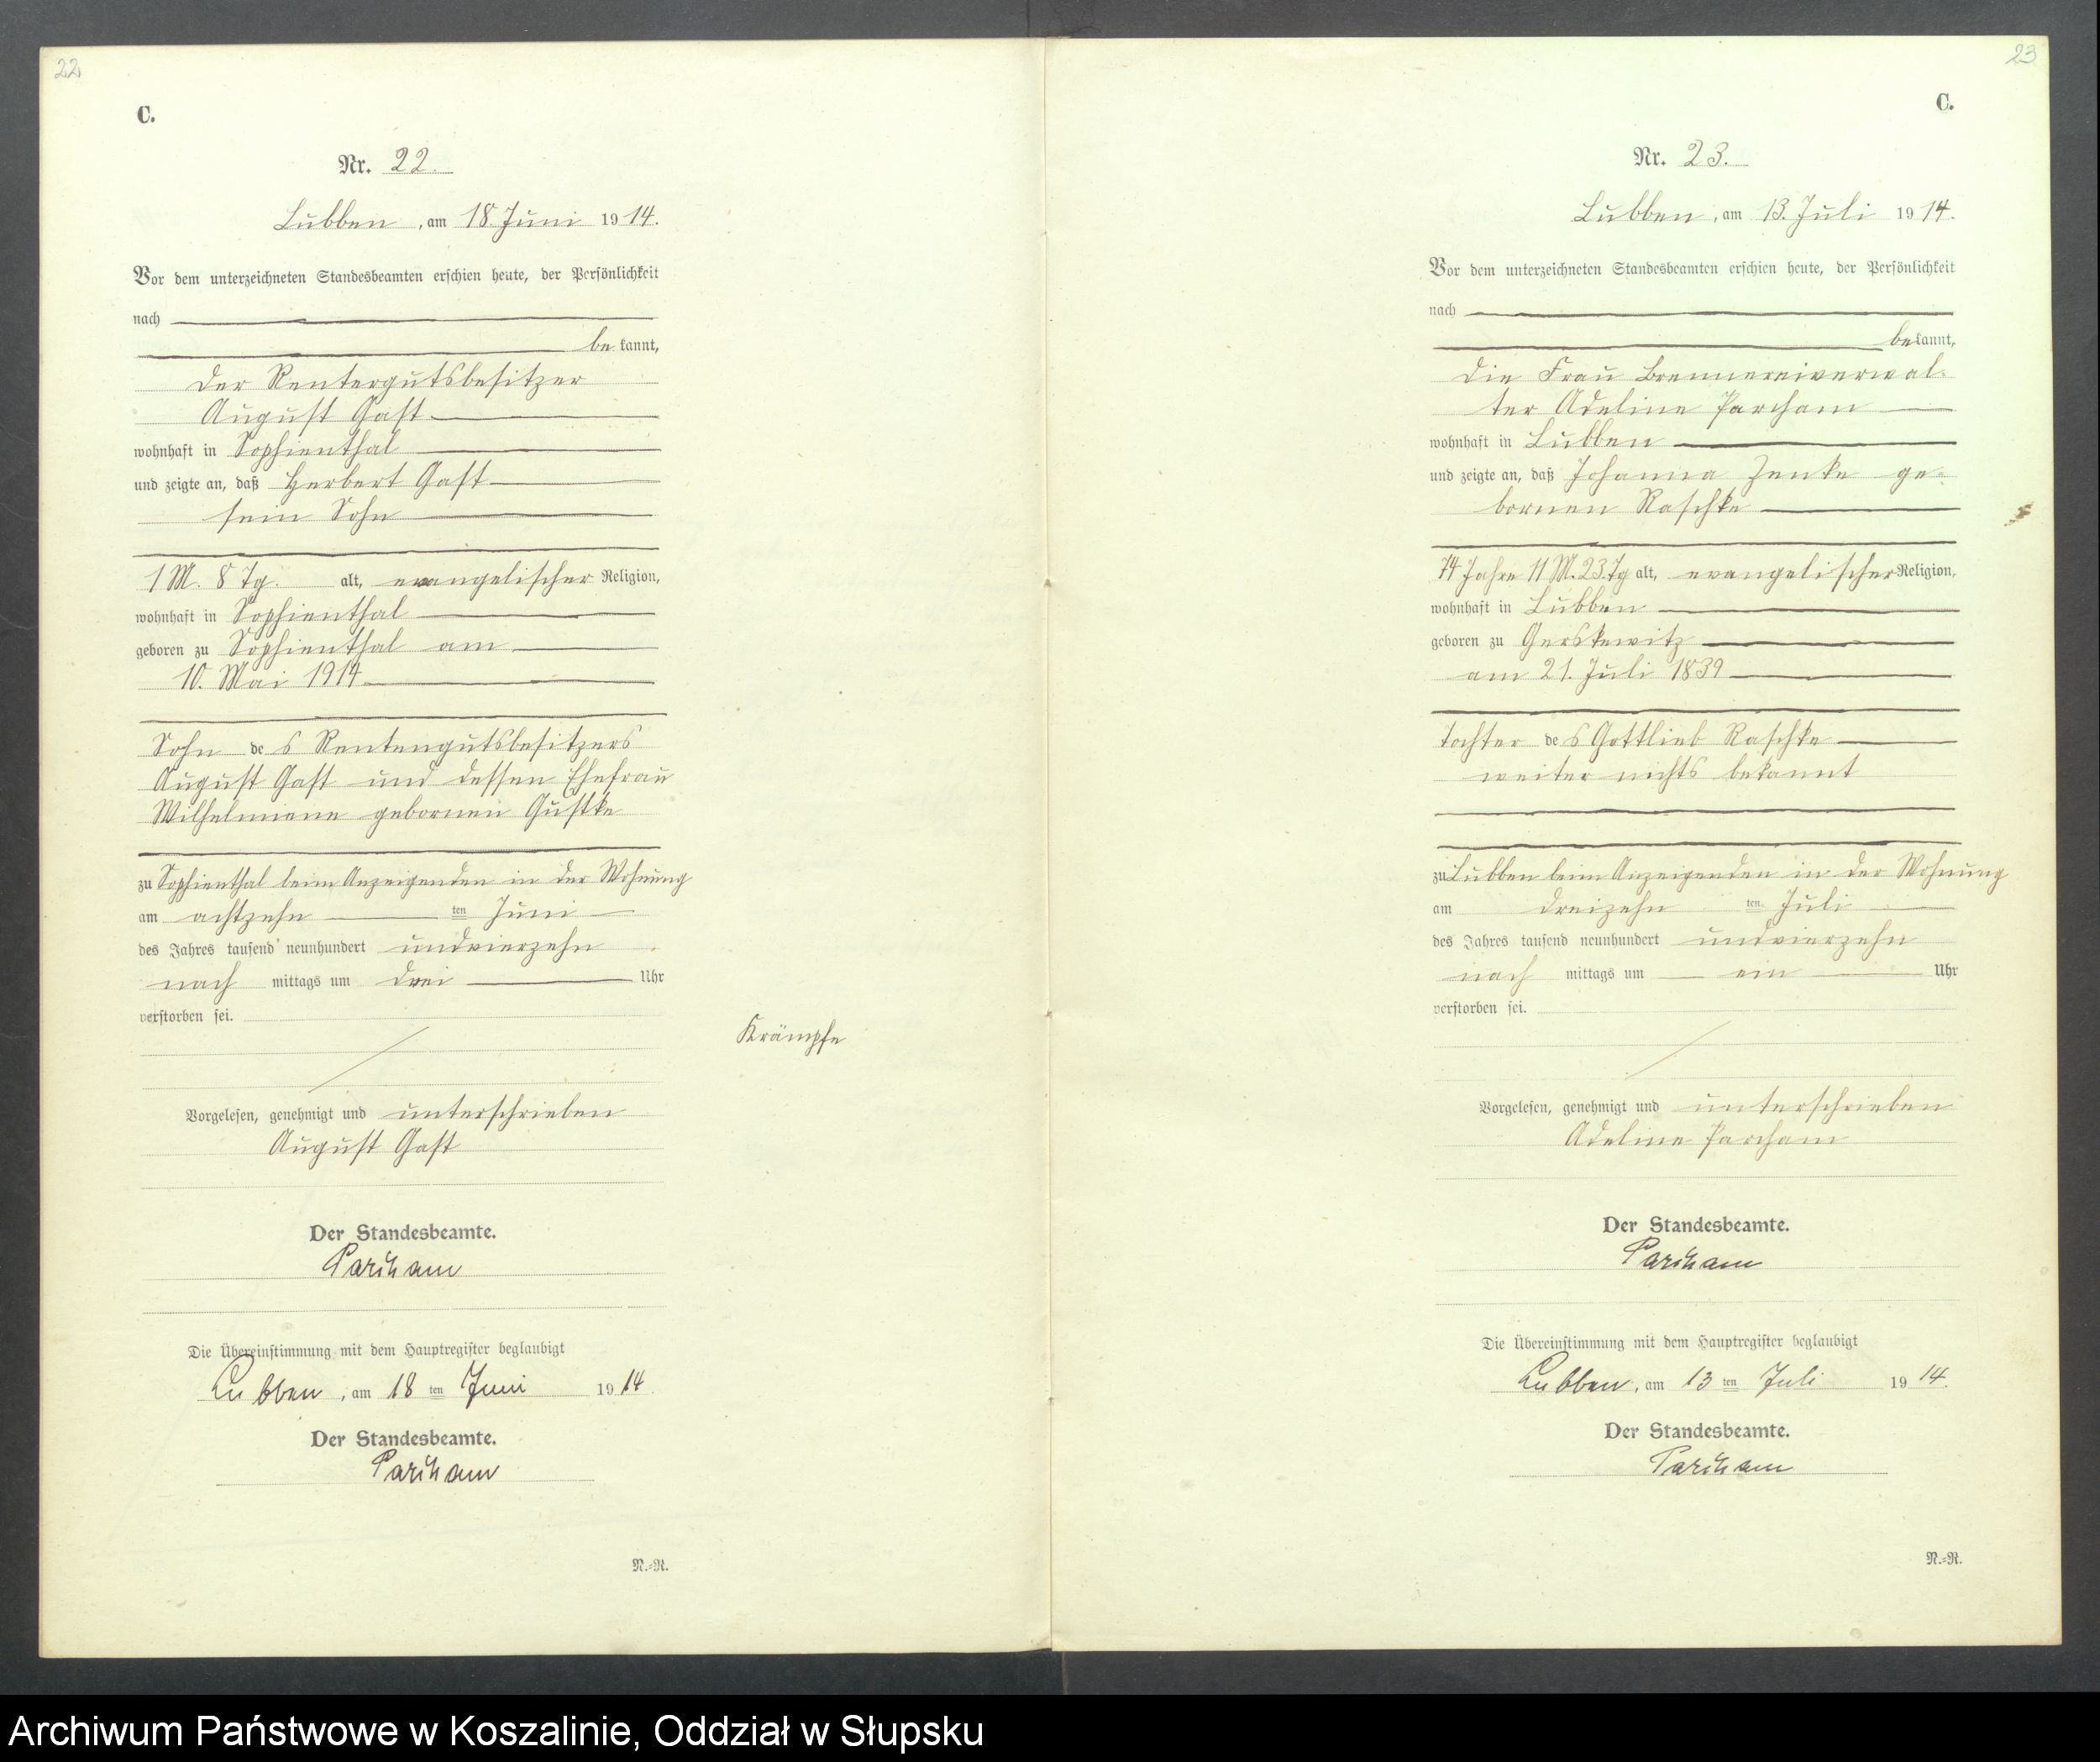 22
C.
Nr. 22.
Lubben, am 18. Juni 1914.
Vor dem unterzeichneten Standesbeamten erschien heute, der Persönlichkeit
nach
bekannt,
der Rentergutsbesitzer
August Gast
wohnhaft in Sophienthal
und zeigte an, daß Herbert Gast
sein Sohn
1 M. 8 Tg. alt, evangelischer Religion,
wohnhaft in Sophienthal
geboren zu Sophienthal am
10. Mai 1914
Sohn des Rentengutsbesitzers
August Gast und dessen Ehefrau
Wilhelmiene gebornen Gustke
zu Sophienthal beim Anzeigenden in der Wohnung
am achtzehn ten Juni
des Jahres tausend neunhundert undvierzehn
nach mittags um drei Uhr
verstorben sei.
Krämpfe
Vorgelesen, genehmigt und unterschrieben
August Gast
Der Standesbeamte.
Parcham
Die Übereinstimmung mit dem Hauptregister beglaubigt
Lubben, am 18 ten Juni 1914.
Der Standesbeamte.
Parcham
N.=R.
23
C.
Nr. 23.
Lubben, am 13. Juli 1914.
Vor dem unterzeichneten Standesbeamten erschien heute, der Persönlichkeit
nach
bekannt,
die Frau Brennereiverwal-
ter Adeline Parcham
wohnhaft in Lubben
und zeigte an, daß Johanna Zenke ge-
bornen Raschke
74 Jahre 11 M. 23. Tg alt, evangelischer Religion,
wohnhaft in Lubben
geboren zu Gerskewitz
am 21. Juli 1839
Tochter des Gottlieb Raschke
weiter nichts bekannt
zu Lubben beim Anzeigenden in der Wohnung
am dreizehn ten Juli
des Jahres tausend neunhundert undvierzehn
nach mittags um ein Uhr
verstorben sei.
Vorgelesen, genehmigt und unterschrieben
Adeline Parcham
Der Standesbeamte.
Parcham
Die Übereinstimmung mit dem Hauptregister beglaubigt
Lubben, am 13 ten Juli 1914.
Der Standesbeamte.
Parcham
N.=R.
Archiwum Państwowe w Koszalinie, Oddział w Słupsku